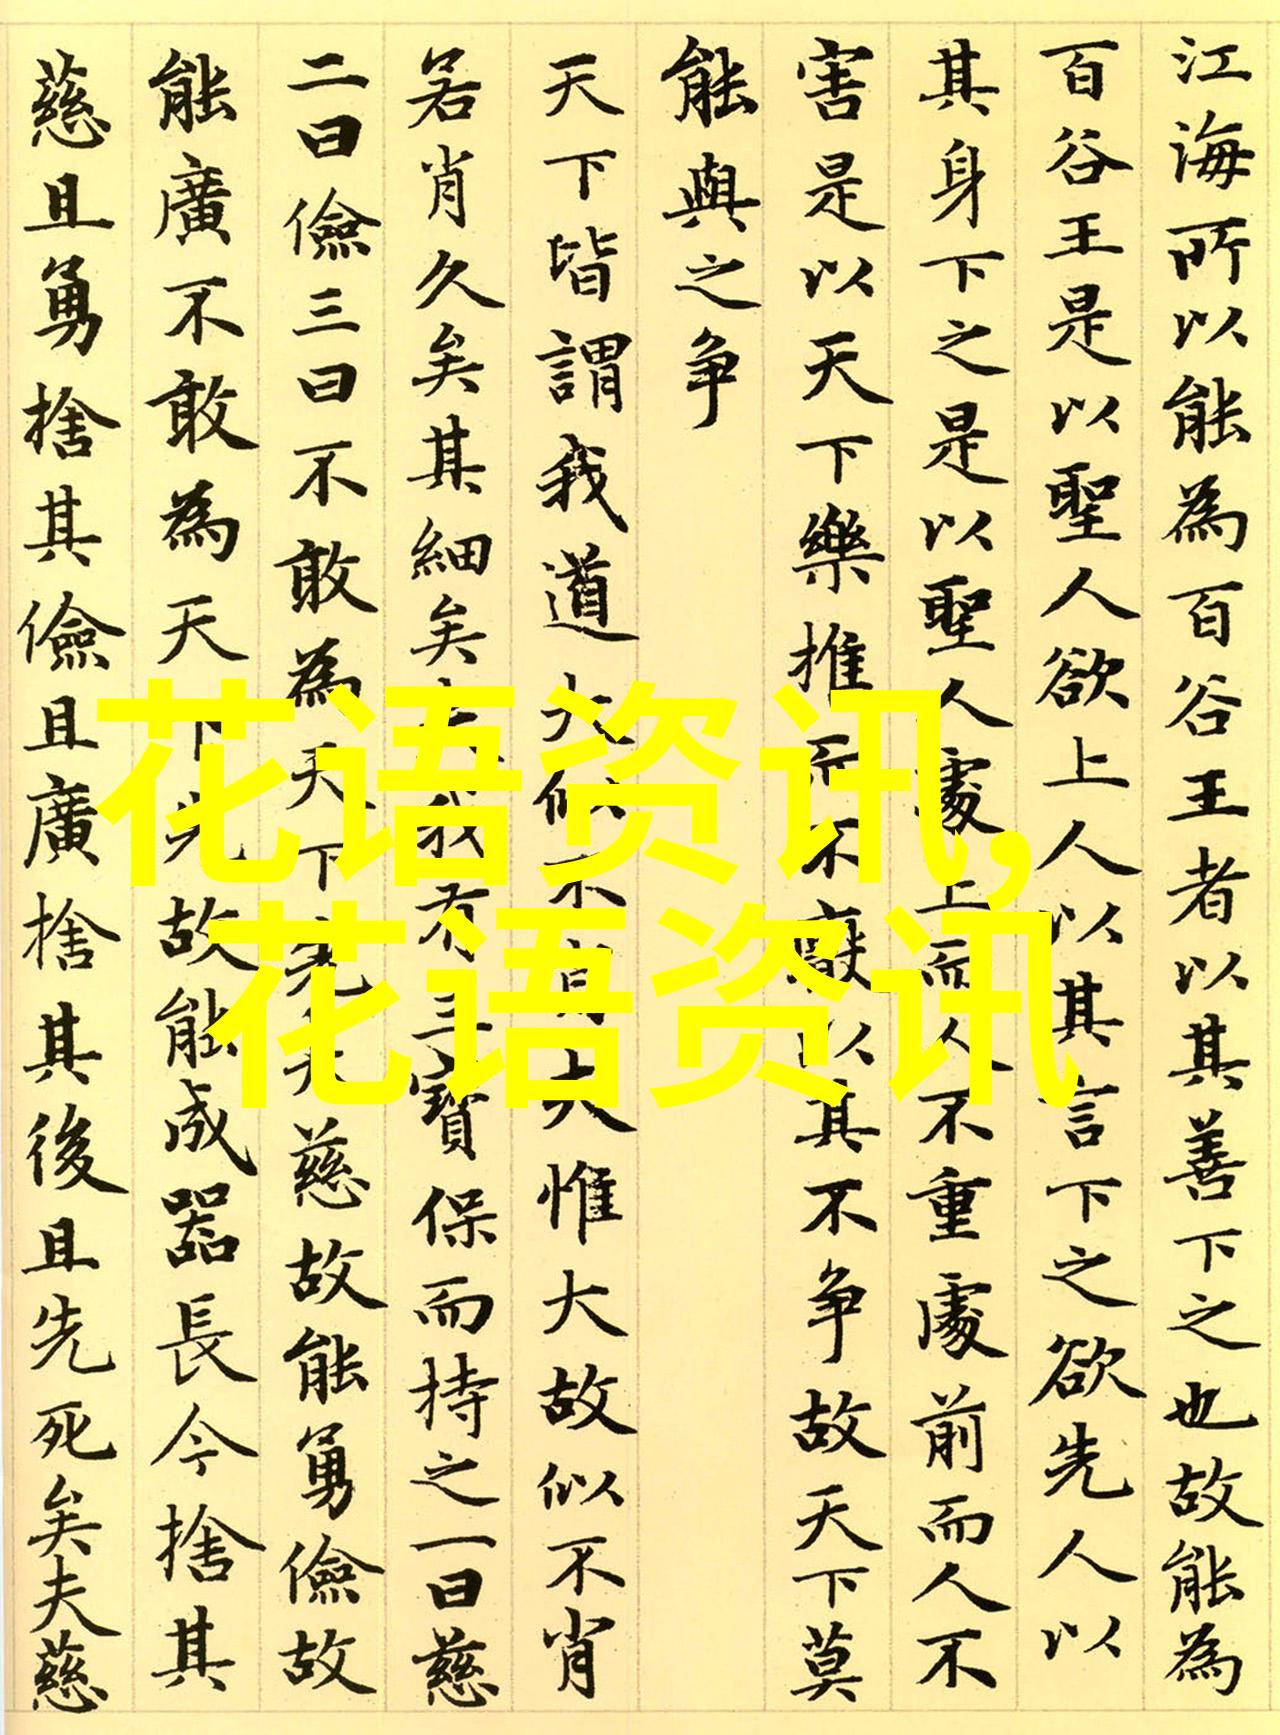 江海所以能為百谷王者以其善下之也故能為
百谷王是以聖人欲上人以其言下之欲先人以
其身下之是以聖人處上而人不重處前而人不
害是以天下樂推而不厭以其不争故天下莫
能與之争
天下皆謂我道大似不肖大惟大故似不肖
若肖久矣其細矣夫我有三寶保而持之一曰慈
二曰儉三曰不敢為天下先夫慈故能勇儉故
能廣不敢為天下先故能成器長今捨其
慈且勇捨其儉且廣捨其後且先死矣夫慈
花语资讯,
花语资讯